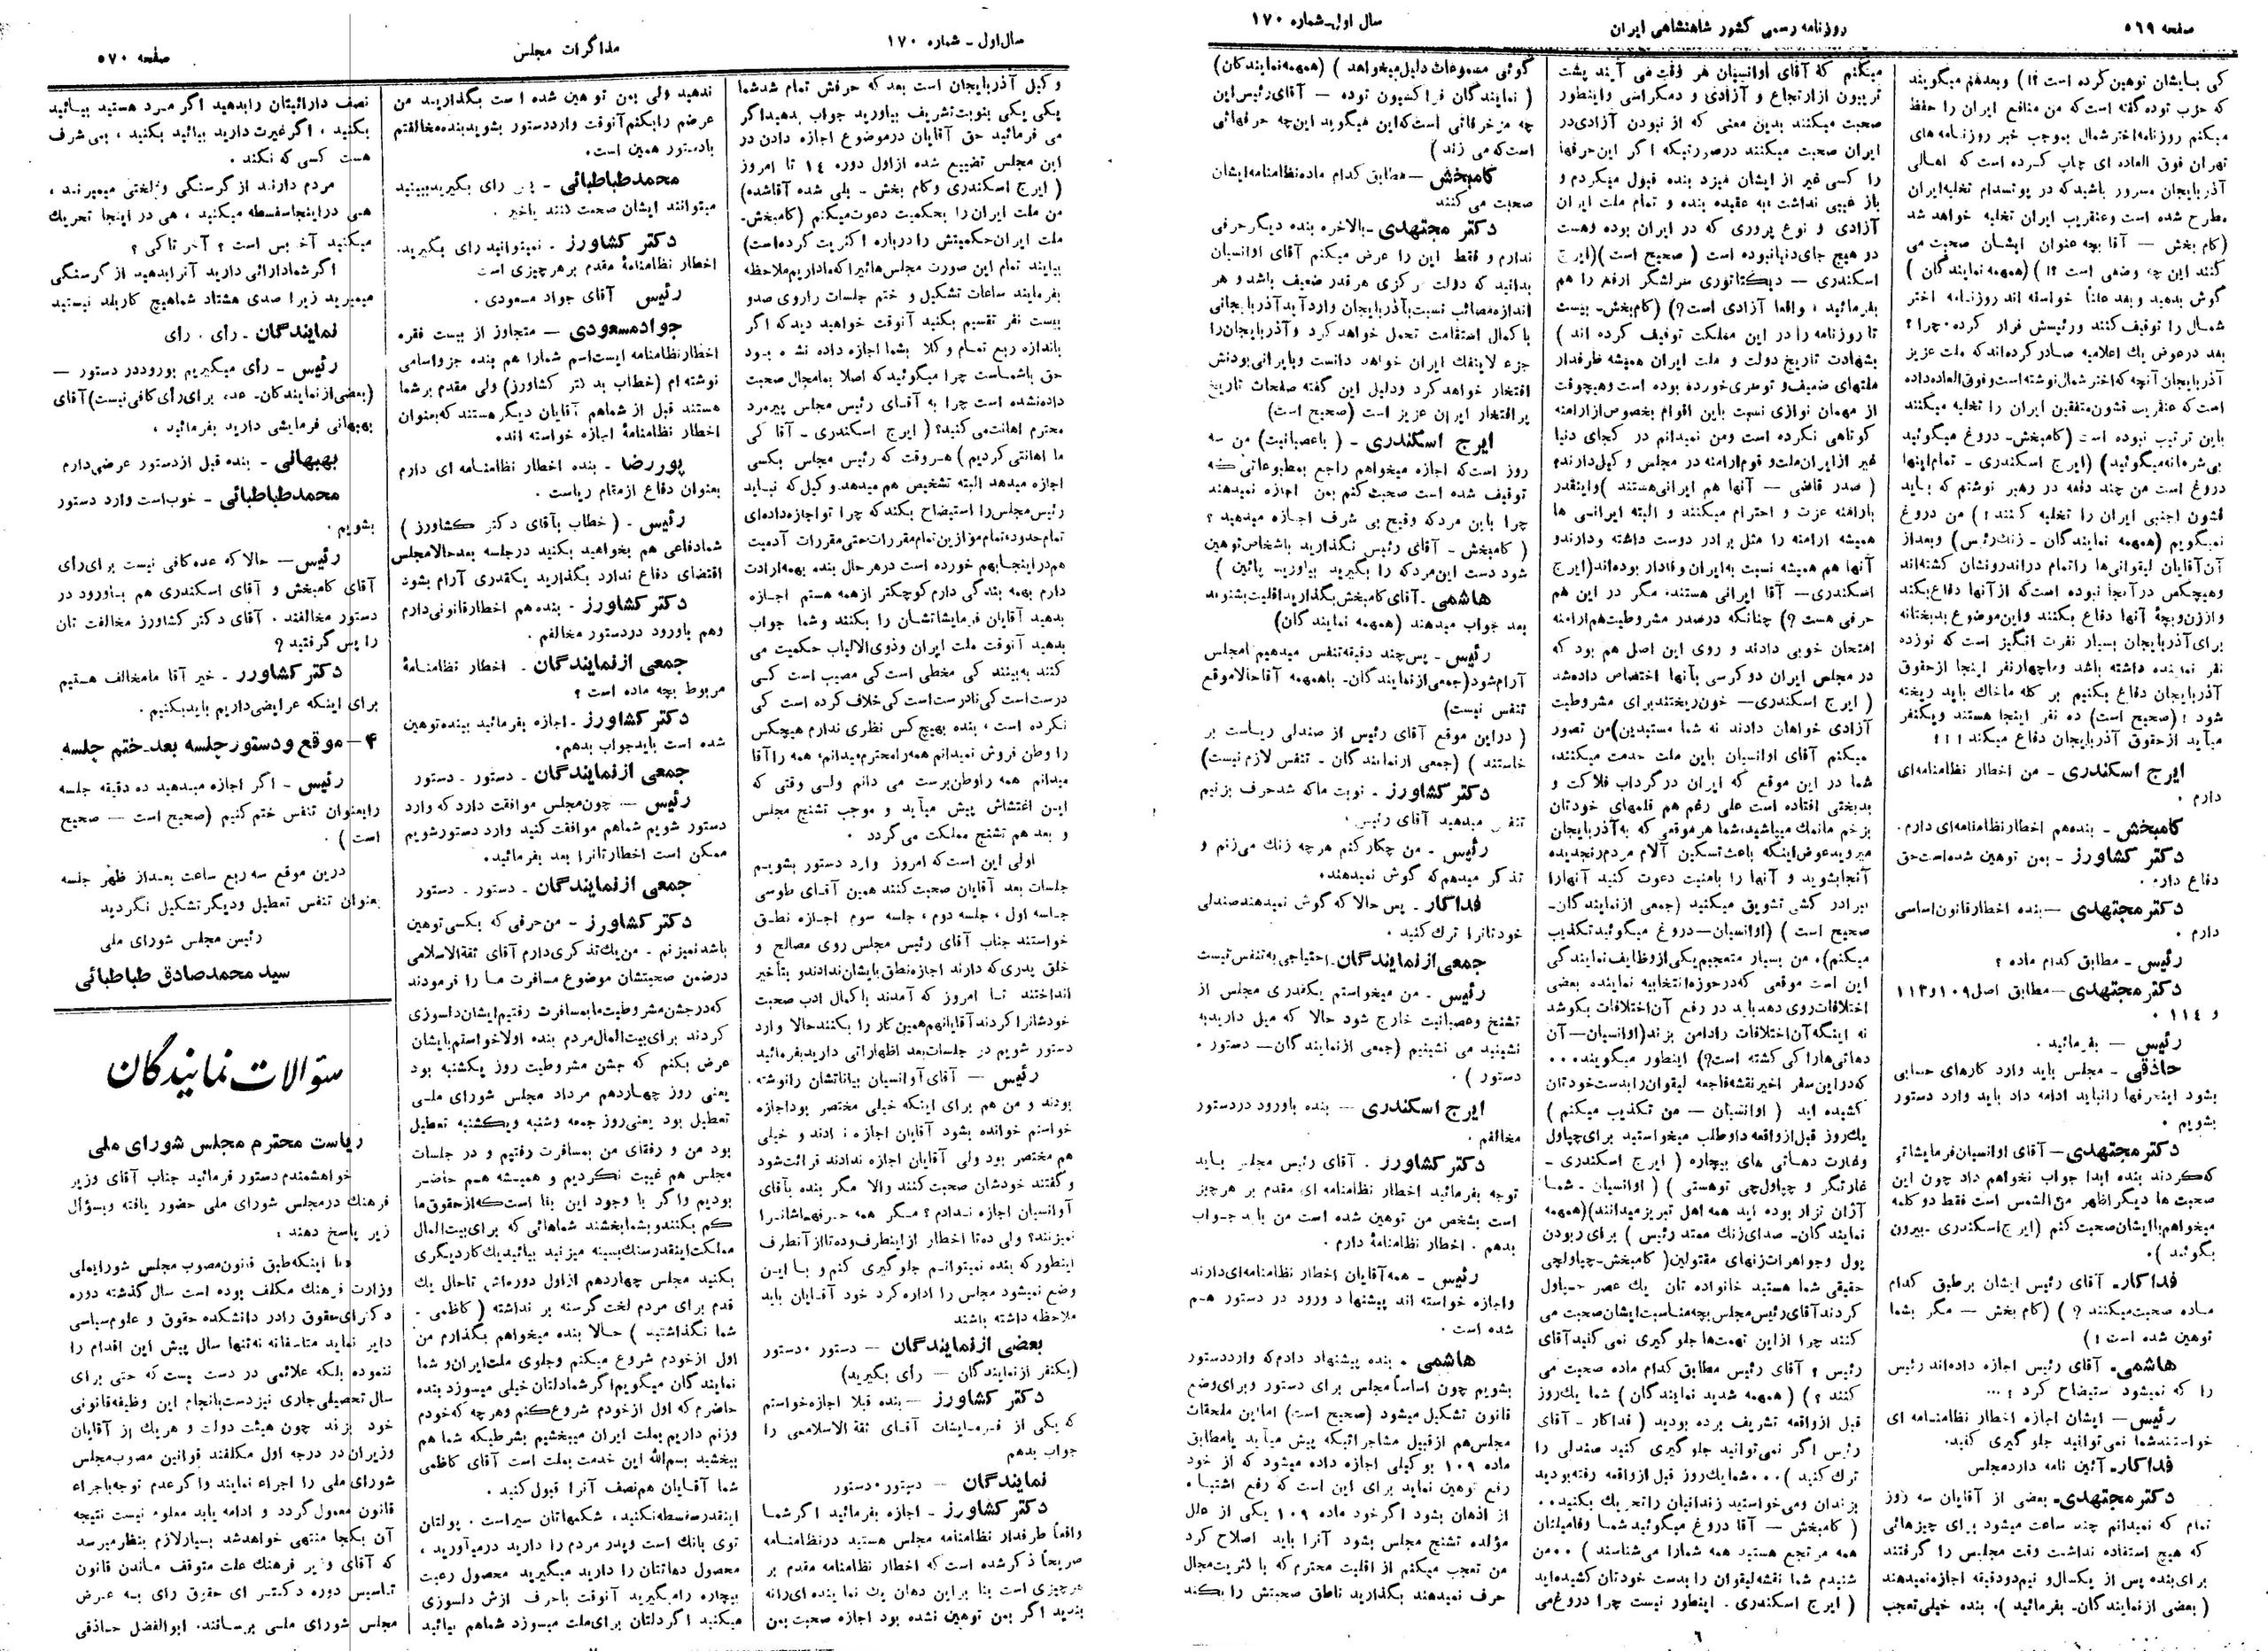 صفحه ٥٦٩
روزنامه رسمی کشور شاهنشاهی ایران
سال اول-شماره ١٧٠
کی بایشان توهین کرده است ؟!) وبعدهم میگویند
که حزب توده گفته است که من منافع ایران را حفظ
میکنم روزنامه اختر شمال بموجب خبر روزنامه های
تهران فوق العاده ای چاپ کرده است که اهالی
آذربایجان مسرور باشید که در پوتسدام تخلیه ایران
مطرح شده است وعنقریب ایران تخلیه خواهد شد
(کام بخش — آقا بچه عنوان ایشان صحبت می
کنند این چه وضعی است ؟!) (همهمه نمایندگان)
گوش بدهید وبعد علناً خواسته اند روزنامه اختر
شمال را توقیف کنند ورئیسش فرار کرده . چرا ؟
بعد درعوض یك اعلامیه صادر کرده‌اند که ملت عزیز
آذربایجان آنچه که اختر شمال نوشته است و فوق العاده داده
است که عنقریب قشون متفقین ایران را تخلیه میکنند
باین ترتیب نبوده است (کامبخش- دروغ میگوئید
بی شرمانه میگوئید) (ایرج اسکندری - تمام اینها
دروغ است من چند دفعه در رهبر نوشتم که باید
قشون اجنبی ایران را تخلیه کنند !) من دروغ
نمیگویم (همهمه نمایندگان - زنك رئیس) وبعداز
آن آقایان لیقوانی ها را تمام در اندرونشان کشته‌اند
وهیچکس درآنجا نبوده است که از آنها دفاع بکند
واززن وبچهٔ آنها دفاع بکنند واین موضوع بدبختانه
برای آذربایجان بسیار نفرت انگیز است که نوزده
نفر نماینده داشته باشد وما چهار نفر اینجا ازحقوق
آذربایجان دفاع بکنیم بر کله ما خاك باید ریخته
شود !(صحیح است) ده نفر اینجا هستند ویکنفر
میآید ازحقوق آذربایجان دفاع میکند !!!
ایرج اسکندری - من اخطار نظامنامه‌ای
دارم .
کامبخش - بنده‌هم اخطار نظامنامه‌ای دارم.
دکتر کشاورز - بمن توهین شده‌است حق
دفاع دارم .
دکتر مجتهدی —بنده اخطار قانون اساسی
دارم .
رئیس - مطابق کدام ماده ؟
دکتر مجتهدی —مطابق اصل ١٠٩ و ١١٣
و ١١٤ .
رئیس — بفرمائید .
حاذقی - مجلس باید وارد کارهای حسابی
بشود اینحرفها را نباید ادامه داد باید وارد دستور
بشویم .
دکتر مجتهدی — آقای اوانسیان فرمایشاتی
که کردند بنده ابدا جواب نخواهم داد چون این
صحبت ها دیگر اظهر من الشمس است فقط دو کلمه
میخواهم با ایشان صحبت کنم (ایرج اسکندری - بیرون
بگوئید ).
فداکار- آقای رئیس ایشان برطبق کدام
ماده صحبت میکنند ؟ ) (کام بخش — مگر بشما
توهین شده است !)
هاشمی- آقای رئیس اجازه داده‌اند رئیس
را که نمیشود استیضاح کرد ! ...
رئیس — ایشان اجازه اخطار نظامنامه ای
خواستند شما نمی توانید جلو گیری کنید.
فداکار- آئین نامه دارد مجلس
دکتر مجتهدی- بعضی از آقایان سه روز
تمام که نمیدانم چند ساعت میشود برای چیزهائی
که هیچ استفاده نداشت وقت مجلس را گرفتند
برای بنده پس از یکسال و نیم دو دقیقه اجازه نمیدهند
( بعضی از نمایندگان- بفرمائید ). بنده خیلی تعجب
میکنم که آقای اوانسیان هر وقت می آیند پشت
تریبون از ارتجاع و آزادی و دمکراسی واینطور
صحبت میکنند بدین معنی که از نبودن آزادی در
ایران صحبت میکنند درصورتیکه اگر این حرفها
را کسی غیر از ایشان میزد بنده قبول میکردم و
باز عیبی نداشت به عقیده بنده و تمام ملت ایران
آزادی و نوع پروری که در ایران بوده وهست
در هیچ جای دنیا نبوده است ( صحیح است)(ایرج
اسکندری — دیکتاتوری سرلشگر ارفع را هم
بفرمائید ، واقعا آزادی است؟) (کام بخش- بیست
تا روزنامه را در این مملکت توقیف کرده اند )
بشهادت تاریخ دولت و ملت ایران همیشه طرفدار
ملتهای ضعیف و توسری خورده بوده است وهیچوقت
از مهمان نوازی نسبت باین اقوام بخصوص ازارامنه
کوتاهی نکرده است ومن نمیدانم در کجای دنیا
غیر ازایران ملت و قوم ارامنه در مجلس و کیل دارند؟
( صدر قاضی — آنها هم ایرانی هستند )واینقدر
بارامنه عزت و احترام میکنند و البته ایرانی ها
همیشه ارامنه را مثل برادر دوست داشته و دارند و
آنها هم همیشه نسبت به ایران وفادار بوده‌اند(ایرج
اسکندری— آقا ایرانی هستند، مگر در این هم
حرفی هست ؟) چنانکه درصدر مشروطیت هم ارامنه
امتحان خوبی دادند و روی این اصل هم بود که
در مجلس ایران دو کرسی بآنها اختصاص داده شد
( ایرج اسکندری— خون ریختند برای مشروطیت
آزادی خواهان دادند نه شما مستبدین)من تصور
میکنم آقای اوانسیان باین ملت خدمت میکنند،
شما در این موقع که ایران درگرداب فلاکت و
بدبختی افتاده است علی رغم هم قلمهای خودتان
بزخم ما نمك میپاشید،شما هر موقعی که به آذربایجان
میروید عوض اینکه باعث تسکین آلام مردم رنجدیده
آنجا بشوید و آنها را بامنیت دعوت کنید آنها را
ببرادر کشی تشویق میکنید (جمعی از نمایندگان-
صحیح است ) (اوانسیان—دروغ میگوئید تکذیب
میکنم)، من بسیار متعجبم یکی از وظایف نمایندگی
این است موقعی که در حوزه انتخابیه نماینده بعضی
اختلافات روی دهد باید در رفع آن اختلافات بکوشد
نه اینکه آن اختلافات را دامن بزند (اوانسیان—آن
دهاتی ها را کی کشته است؟) اینطور میگویند...
که در این سفر اخیر نقشه فاجعه لیقوان را بدست خودتان
کشیده اید ( اوانسیان — من تکذیب میکنم )
یك روز قبل از واقعه داوطلب میخواستید برای چپاول
وغارت دهاتی های بیچاره ( ایرج اسکندری -
غارتگر و چپاولچی توهستی ) ( اوانسیان - شما
آژان تزار بوده اید همه اهل تبریز میدانند)(همهمه
نمایندگان- صدای زنك ممتد رئیس ) برای ربودن
پول وجواهرات زنهای مقتولین(کامبخش-چپاولچی
حقیقی شما هستید خانواده تان یك عمر چپاول
کردند آقای رئیس مجلس بچه مناسبت ایشان صحبت می
کنند چرا از این تهمت‌ها جلو گیری نمی کنید آقای
رئیس ؟ آقای رئیس مطابق کدام ماده صحبت می
کنند ؟) ( همهمه شدید نمایندگان ) شما یك روز
قبل از واقعه تشریف برده بودید ( فداکار - آقای
رئیس اگر نمی توانید جلو گیری کنید صندلی را
ترك کنید ) ...شما یك روز قبل از واقعه رفته بودید
بزندان ومی خواستید زندانیان را تحریك بکنید..
( کامبخش — آقا دروغ میگوئید شما وفامیلتان
همه مرتجع هستید همه شما را می شناسند ) ...من
شنیدم شما نقشه لیقوان را بدست خودتان کشیده‌اید
( ایرج اسکندری . اینطور نیست چرا دروغ می
گوئی مسموعات دلیل میخواهد ) (همهمه نمایندگان)
( نمایندگان فراکسیون توده — آقای رئیس این
چه مزخرفاتی است که این میگوید این چه حرفهائی
است که می زند )
کامبخش —مطابق کدام ماده نظامنامه ایشان
صحبت می کنند
دکتر مجتهدی-بالاخره بنده دیگر حرفی
ندارم و فقط این را عرض میکنم آقای اوانسیان
بدانید که دولت مرکزی هرقدر ضعیف باشد و هر
اندازه مصائب نسبت بآذربایجان وارد آید آذربایجانی
با کمال استقامت تحمل خواهد کرد و آذربایجان را
جزء لاینفك ایران خواهد دانست وبایرانی بودنش
افتخار خواهد کرد ودلیل این گفته صفحات تاریخ
پر افتخار ایران عزیز است (صحیح است)
ایرج اسکندری - ( باعصبانیت) من سه
روز است که اجازه میخواهم راجع بمطبوعاتی که
توقیف شده است صحبت کنم بمن اجازه نمیدهند
چرا باین مردکه وقیح بی شرف اجازه میدهید ؟
( کامبخش - آقای رئیس نگذارید باشخاص توهین
شود دست این مردکه را بگیرید بیاورید پائین )
هاشمی -آقای کامبخش بگذارید اقلیت بشنوند
بعد جواب میدهند (همهمه نمایندگان)
رئیس - پس چند دقیقه تنفس میدهیم تا مجلس
آرام شود (جمعی از نمایندگان- باهمهمه آقا حالا موقع
تنفس نیست)
( دراین موقع آقای رئیس از صندلی ریاست بر
خاستند ) (جمعی از نمایندگان - تنفس لازم نیست)
دکتر کشاورز - نوبت ما که شد حرف بزنیم
تنفس میدهید آقای رئیس.
رئیس - من چکار کنم هرچه زنك می زنم و
تذکر میدهم که گوش نمیدهند.
فداکار - پس حالا که گوش نمیدهند صندلی
خودتان را ترك کنید .
جمعی از نمایندگان- احتیاجی به تنفس نیست
رئیس - من میخواستم یکقدری مجلس از
تشنج وعصبانیت خارج شود حالا که میل دارید به
نشینید می نشینیم (جمعی از نمایندگان— دستور .
دستور ).
ایرج اسکندری — بنده باورود در دستور
مخالفم .
دکتر کشاورز . آقای رئیس مجلس باید
توجه بفرمائید اخطار نظامنامه ای مقدم بر هرچیز
است بشخص من توهین شده است من باید جواب
بدهم . اخطار نظامنامهٔ دارم .
رئیس - همه آقایان اخطار نظامنامه‌ای دارند
واجازه خواسته اند پیشنهاد ورود در دستور هم
شده است .
هاشمی . بنده پیشنهاد دادم که وارد دستور
بشویم چون اساساً مجلس برای دستور وبرای وضع
قانون تشکیل میشود (صحیح است) اما این ملحقات
مجلس هم از قبیل مشاجراتیکه پیش میآید یا مطابق
ماده ١٠٩ بوکیلی اجازه داده میشود که از خود
رفع توهین نماید برای این است که رفع اشتباه .
از اذهان بشود اگر خود ماده ١٠٩ یکی از علل
مؤلده تشنج مجلس بشود آنرا باید اصلاح کرد
من تعجب میکنم از اقلیت محترم که با کثریت مجال
حرف نمیدهند بگذارید ناطق صحبتش را بکند
٦
سال اول - شماره ١٧٠
مذاکرات مجلس
صفحه ٥٧٠
و کیل آذربایجان است بعد که حرفش تمام شد شما
یکی یکی بنوبت تشریف بیاورید جواب بدهید اگر
می فرمائید حق آقایان در موضوع اجازه دادن در
این مجلس تضییع شده از اول دوره ١٤ تا امروز
( ایرج اسکندری وکام بخش - بلی شده آقا شده)
من ملت ایران را بحکمیت دعوت میکنم (کامبخش-
ملت ایران حکمیتش را درباره اکثریت کرده است)
بیایند تمام این صورت مجلس هائیرا که ما داریم ملاحظه
بفرمایند ساعات تشکیل و ختم جلسات را روی صدو
بیست نفر تقسیم بکنید آنوقت خواهید دید که اگر
باندازه ربع تمام وکلا بشما اجازه داده نشده بود
حق باشماست چرا میگوئید که اصلا بما مجال صحبت
داده نشده است چرا به آقای رئیس مجلس پیرمرد
محترم اهانت می کنید؟ ( ایرج اسکندری - آقا کی
ما اهانتی کردیم ) هروقت که رئیس مجلس بکسی
اجازه میدهد البته تشخیص هم میدهد وکیل که نباید
رئیس مجلس را استیضاح بکند که چرا تو اجازه داده‌ای
تمام حدود تمام موازین تمام مقررات حتی مقررات آدمیت
هم در اینجا بهم خورده است درهر حال بنده بهمه ارادت
دارم بهمه بندگی دارم کوچکتر از همه هستم اجازه
بدهید آقایان فرمایشاتشان را بکنند وشما جواب
بدهید آنوقت ملت ایران وذوی الالباب حکمیت می
کنند به بینند کی مخطی است کی مصیب است کی
درست است کی نادرست است کی خلاف کرده است کی
نکرده است ، بنده بهیچکس نظری ندارم هیچکس
را وطن فروش نمیدانم همه را محترم میدانم، همه را آقا
میدانم همه را وطن پرست می دانم ولی وقتی که
این اغتشاش پیش میآید و موجب تشنج مجلس
و بعد هم تشنج مملکت می گردد .
اولی این است که امروز وارد دستور بشویم
جلسات بعد آقایان صحبت کنند همین آقای طوسی
جلسه اول ، جلسه دوم ، جلسه سوم اجازه نطق
خواستند جناب آقای رئیس مجلس روی مصالح و
خلق پدری که دارند اجازه نطق بایشان ندادند و بتأخیر
انداختند تا امروز که آمدند با کمال ادب صحبت
خودشان را کردند آقایان هم همین کار را بکنند حالا وارد
دستور شویم در جلسات بعد اظهاراتی دارید بفرمائید
رئیس — آقای آوانسیان بیاناتشان را نوشته
بودند و من هم برای اینکه خیلی مختصر بود اجازه
خواستم خوانده بشود آقایان اجازه ندادند و خیلی
هم مختصر بود ولی آقایان اجازه ندادند قرائت شود
و گفتند خودشان صحبت کنند والا مگر بنده بآقای
آوانسیان اجازه ندادم ؟ مگر همه حرفهاشان را
نمیزنند؟ ولی ده تا اخطار از اینطرف و ده تا از آنطرف
اینطور که بنده نمیتوانم جلو گیری کنم و با این
وضع نمیشود مجلس را اداره کرد خود آقایان باید
ملاحظه داشته باشند
بعضی از نمایندگان — دستور . دستور
(یکنفر از نمایندگان — رأی بگیرید)
دکتر کشاورز —بنده قبلا اجازه خواستم
که یکی از فرمایشات آقای ثقة الاسلامی را
جواب بدهم
نمایندگان — دستور . دستور
دکتر کشاورز - اجازه بفرمائید اگر شما
واقعاً طرفدار نظامنامه مجلس هستید در نظامنامه
صریحاً ذکر شده است که اخطار نظامنامه مقدم بر
هرچیزی است بنا براین دهان یك نماینده‌ای را نه
بندید اگر بمن توهین نشده بود اجازه صحبت بمن
ندهید ولی بمن توهین شده است بگذارید من
عرضم را بکنم آنوقت وارد دستور بشوید بنده مخالفتم
بادستور همین است.
محمد طباطبائی - پس رأی بگیرید ببینید
میتوانند ایشان صحبت کنند یاخیر .
دکتر کشاورز - نمیتوانید رأی بگیرید.
اخطار نظامنامهٔ مقدم بر هرچیزی است
رئیس آقای جواد مسعودی .
جواد مسعودی — متجاوز از بیست فقره
اخطار نظامنامه ایست اسم شما را هم بنده جزو اسامی
نوشته ام (خطاب بدکتر کشاورز) ولی مقدم بر شما
هستند قبل از شما هم آقایان دیگر هستند که بعنوان
اخطار نظامنامهٔ اجازه خواسته اند.
پور رضا - بنده اخطار نظامنامه ای دارم
بعنوان دفاع از مقام ریاست .
رئیس - ( خطاب بآقای دکتر کشاورز )
شما دفاعی هم بخواهید بکنید در جلسه بعد حالا مجلس
اقتضای دفاع ندارد بگذارید یکقدری آرام بشود
دکتر کشاورز - بنده هم اخطار قانونی دارم
وهم باورود در دستور مخالفم .
جمعی از نمایندگان . اخطار نظامنامهٔ
مربوط بچه ماده است ؟
دکتر کشاورز -اجازه بفرمائید ببنده توهین
شده است باید جواب بدهم.
جمعی از نمایندگان - دستور - دستور
رئیس — چون مجلس موافقت دارد که وارد
دستور شویم شما هم موافقت کنید وارد دستور شویم
ممکن است اخطارتانرا بعد بفرمائید.
جمعی از نمایندگان - دستور - دستور
دکتر کشاورز - من حرفی که بکسی توهین
باشد نمیزنم . من یك تذکری دارم آقای ثقة الاسلامی
درضمن صحبتشان موضوع مسافرت ما را فرمودند
که در جشن مشروطیت ما بمسافرت رفتیم ایشان دلسوزی
کردند برای بیت المال مردم بنده اولا خواستم بایشان
عرض بکنم که جشن مشروطیت روز یکشنبه بود
یعنی روز چهاردهم مرداد مجلس شورای ملی
تعطیل بود یعنی روز جمعه و شنبه و یکشنبه تعطیل
بود من و رفقای من بمسافرت رفتیم و در جلسات
مجلس هم غیبت نکردیم و همیشه هم حاضر
بودیم واگر با وجود این بنا است که از حقوق ما
کم بکنند و بشما ببخشند شماهائی که برای بیت المال
مملکت اینقدر سنك بسینه میزنید بیائید یك کار دیگری
بکنید مجلس چهاردهم از اول دوره‌اش تا حال یك
قدم برای مردم لخت گرسنه بر نداشته ( کاظمی -
شما نگذاشتید ) حالا بنده میخواهم بگذارم من
اول از خودم شروع میکنم وجلوی ملت ایران و شما
نمایندگان میگویم اگر شما دلتان خیلی میسوزد بنده
حاضرم که اول از خودم شروع کنم وهرچه که خودم
وزنم داریم بملت ایران میبخشیم بشرطیکه شما هم
ببخشید بسم الله این خدمت بملت است آقای کاظمی
شما آقایان هم نصف آنرا قبول کنید .
اینقدر سفسطه نکنید ، شکمهاتان سیر است ، پولتان
توی بانك است وپدر مردم را دارید درمیآورید ،
محصول دهاتتان را دارید میگیرید محصول رعیت
بیچاره را میگیرید آنوقت با حرف ازش دلسوزی
میکنید اگر دلتان برای ملت میسوزد شماهم بیائید
نصف دارائیتان را بدهید اگر مرد هستید بیائید
بکنید ، اگر غیرت دارید بیائید بکنید ، بی شرف
هست کسی که نکند .
مردم دارند از گرسنگی و لختی میمیرند ،
هی در اینجا سفسطه میکنید ، هی در اینجا تحریك
میکنید آخر بس است ؟ آخر تا کی ؟
اگر شما دارائی دارید آنرا بدهید از گرسنگی
میمیرید زیرا صدی هشتاد شما هیچ کار بلد نیستید
نمایندگان - رأی . رأی
رئیس - رأی میگیریم بورود در دستور —
(بعضی از نمایندگان- عده برای رأی کافی نیست)آقای
بهبهانی فرمایشی دارید بفرمائید .
بهبهانی - بنده قبل از دستور عرضی دارم
محمد طباطبائی - خوب است وارد دستور
بشویم .
رئیس— حالا که عده کافی نیست برای رأی
آقای کامبخش و آقای اسکندری هم باورود در
دستور مخالفند . آقای دکتر کشاورز مخالفت تان
را پس گرفتید ؟
دکتر کشاورز - خیر آقا ما مخالف هستیم
برای اینکه عرایضی داریم باید بکنیم .
۴— موقع و دستور جلسه بعد- ختم جلسه
رئیس - اگر اجازه میدهید ده دقیقه جلسه
را بعنوان تنفس ختم کنیم (صحیح است — صحیح
است ) .
درین موقع سه ربع ساعت بعد از ظهر جلسه
بعنوان تنفس تعطیل ودیگر تشکیل نگردید
رئیس مجلس شورای ملی
سید محمد صادق طباطبائی
سؤالات نمایندگان
ریاست محترم مجلس شورای ملی
خواهشمندم دستور فرمائید جناب آقای وزیر
فرهنك در مجلس شورای ملی حضور یافته و بسؤال
زیر پاسخ دهند :
با اینکه طبق قانون مصوب مجلس شورایملی
وزارت فرهنك مکلف بوده است سال گذشته دوره
دکترای حقوق را در دانشکده حقوق و علوم سیاسی
دایر نماید متاسفانه نه تنها سال پیش این اقدام را
ننموده بلکه علائمی در دست نیست که حتی برای
سال تحصیلی جاری نیز دست بانجام این وظیفه قانونی
خود بزند چون هیئت دولت و هریك از آقایان
وزیران در درجه اول مکلفند قوانین مصوب مجلس
شورای ملی را اجراء نمایند واگر عدم توجه باجراء
قانون معمول گردد و ادامه یابد معلوم نیست نتیجه
آن بکجا منتهی خواهد شد بسیار لازم بنظر میرسد
که آقای وزیر فرهنك علت متوقف ماندن قانون
تاسیس دوره دکترای حقوق رای بعرض
مجلس شورای ملی برسانند. ابوالفضل حاذقی